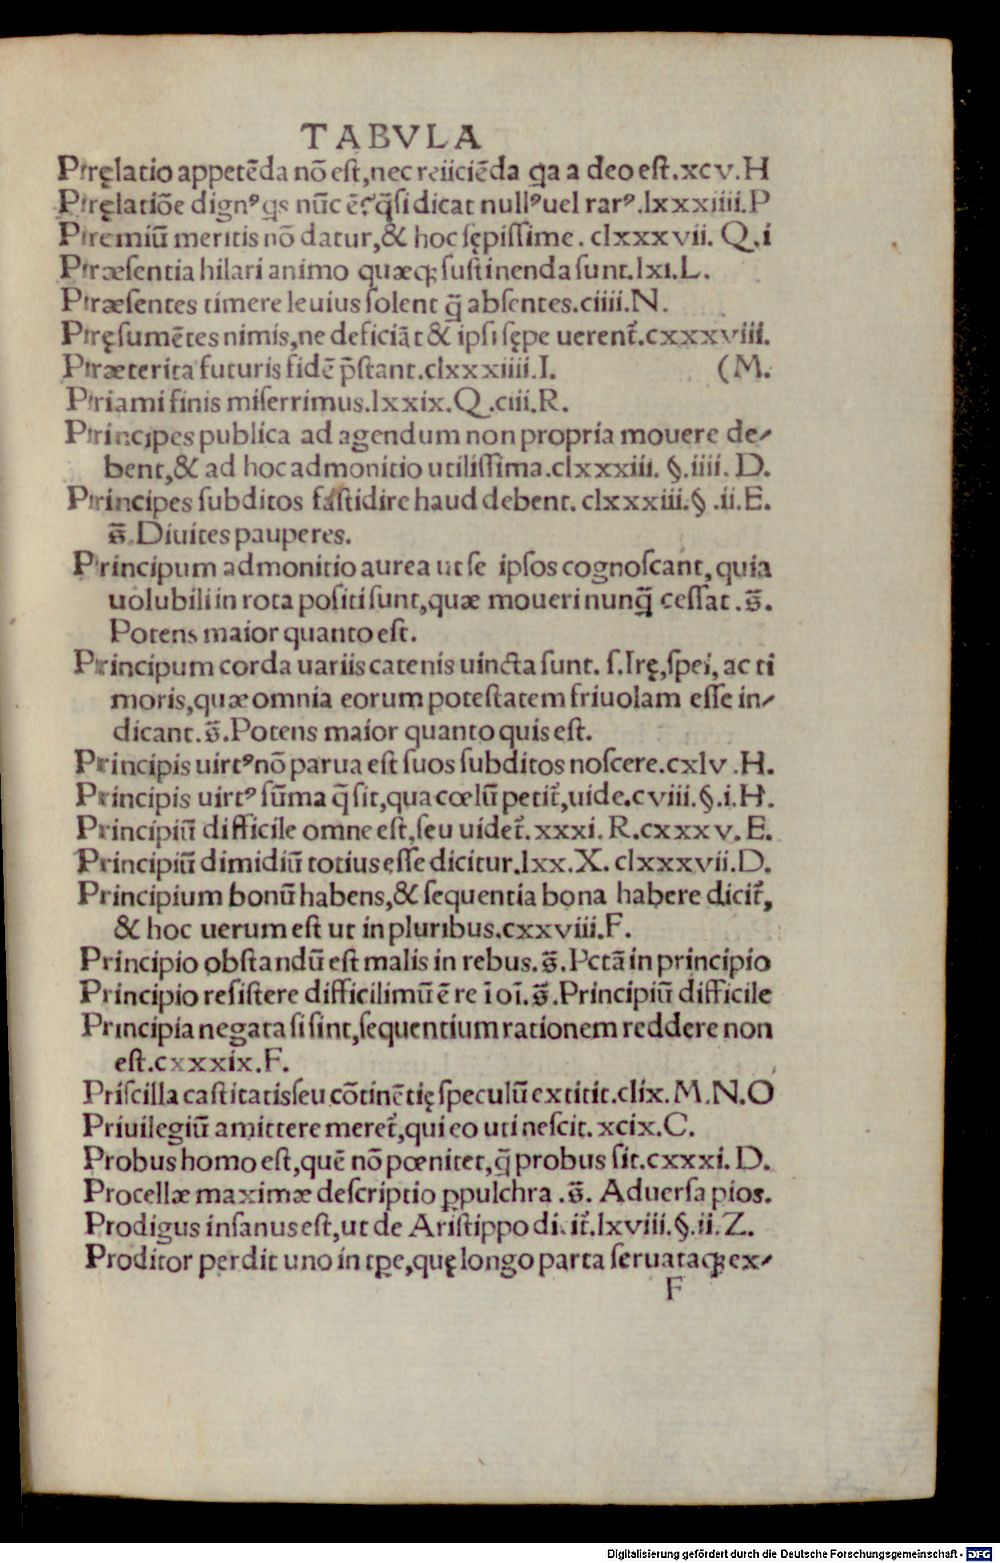 TABVLA
Pręlatio appetēda nō est, nec reiiciēda ꝗa a deo est.xcv.H
Pręlatiōe dignꝰ ꝗs nūc ē? q̄si dicat nullꝰ uel rarꝰ.lxxxiiii.P
Premiū meritis nō datur, & hoc sępissime. clxxxvii. Q.i
Præsentia hilari animo quæqꝫ sustinenda sunt.lxi.L.
Præsentes timere leuius solent q̄ absentes.ciiii.N.
Pręsumētes nimis, ne deficiāt & ipsi sępe uerent᷑.cxxxviii.
Præterita futuris fidē p̄stant.clxxxiiii.I. (M.
Priami finis miserrimus.lxxix.Q.ciii.R.
Principes publica ad agendum non propria mouere de⸗
bent, & ad hoc admonitio utilissima.clxxxiii. §.iiii. D.
Principes subditos fastidire haud debent. clxxxiii.§ .ii.E.
s̄. Diuites pauperes.
Principum admonitio aurea ut se ipsos cognoscant, quia
uolubili in rota positi sunt, quæ moueri nunq̄ cessat .s̄.
Potens maior quanto est.
Principum corda uariis catenis uincta sunt. s.Irę, spei, ac ti
moris, quæ omnia eorum potestatem friuolam esse in⸗
dicant. s̄.Potens maior quanto quis est.
Principis uirtꝰ nō parua est suos subditos noscere.cxlv .H.
Principis uirtꝰ sūma q̄ sit, qua cœlū petit᷑, uide.cviii.§.i.H.
Principiū difficile omne est, seu uidet᷑. xxxi. R.cxxxv. E.
Principiū dimidiū totius esse dicitur.lxx.X. clxxxvii.D.
Principium bonū habens, & sequentia bona habere dicit᷑,
& hoc uerum est ut in pluribus.cxxviii.F.
Principio obstandū est malis in rebus. s̄. Pctā in principio
Principio resistere difficilimū ē re ī oī. s̄.Principiū difficile
Principia negata si sint, sequentium rationem reddere non
est.cxxxix.F.
Priscilla castitatis seu cōtinētię speculū extitit.clix. M.N.O
Priuilegiū amittere meret᷑, qui eo uti nescit. xcix.C.
Probus homo est, quē nō pœnitet, q̄ probus sit.cxxxi. D.
Procellæ maximæ descriptio ꝑpulchra .s̄. Aduersa pios.
Prodigus insanus est, ut de Aristippo di it᷑.lxviii.§.ii. Z.
Proditor perdit uno in tꝑe, quę longo parta seruataqꝫ ex⸗
F
Digitalisierung gefördert durch die Deutsche Forschungsgemeinschaft - DFG